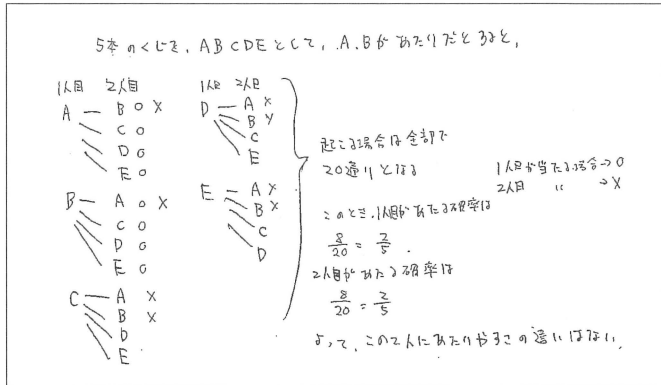 5本のくじを、ABCDEとして、A、Bがあたりだとすると、
1人目 2人目
A B ○ ×
C ○
D ○
E ○
B A ○ ×
C ○
D ○
E ○
C A ×
B ×
D
E
1人目 2人目
D A ×
B ×
C
E
E A ×
B ×
C
D
起こる場合は全部で
20通りとなる
1人目が当たる場合→○
2人目 〃 →×
このとき、1人目があたる確率は
8/20 = 2/5.
2人目があたる確率は
8/20 = 2/5
よって、この2人にあたりやすさの違いはない。